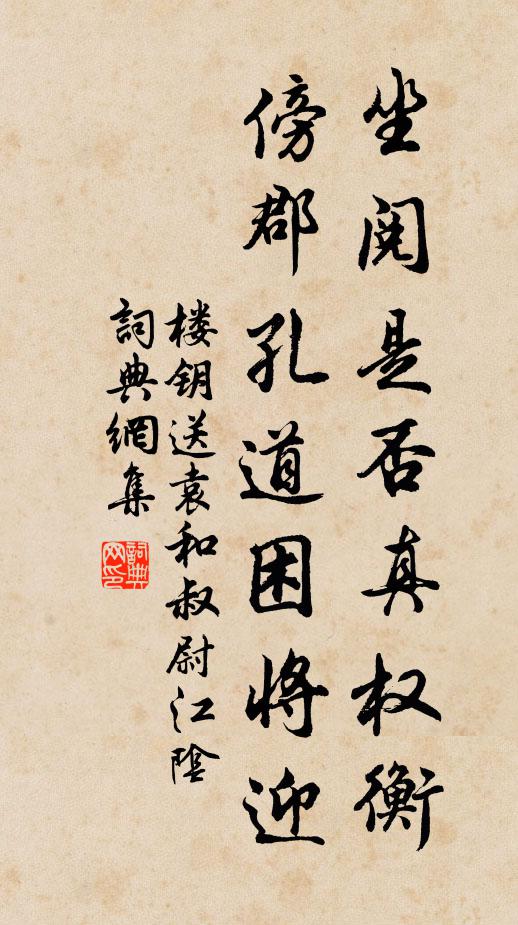 坐阅是否真权衡
傍郡孔道困将迎
楼钥送袁和叔尉江陰
詞典網集
詞典网印